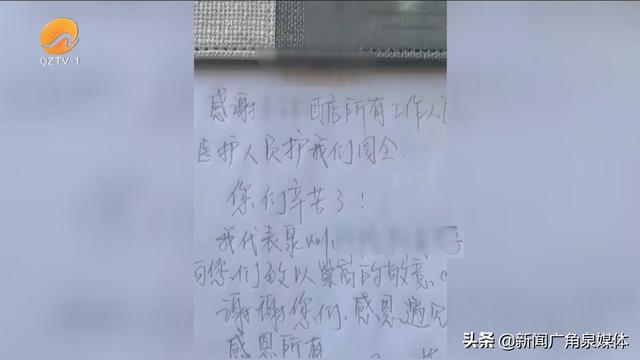 QZTV-1
感谢 酒店所有工作人
医护人员护我们周全.
您们辛苦了!
我代表泉州
向您们致以崇高的敬意。
谢谢您们,感恩遇见
感恩所有
头条 @新闻广角泉媒体